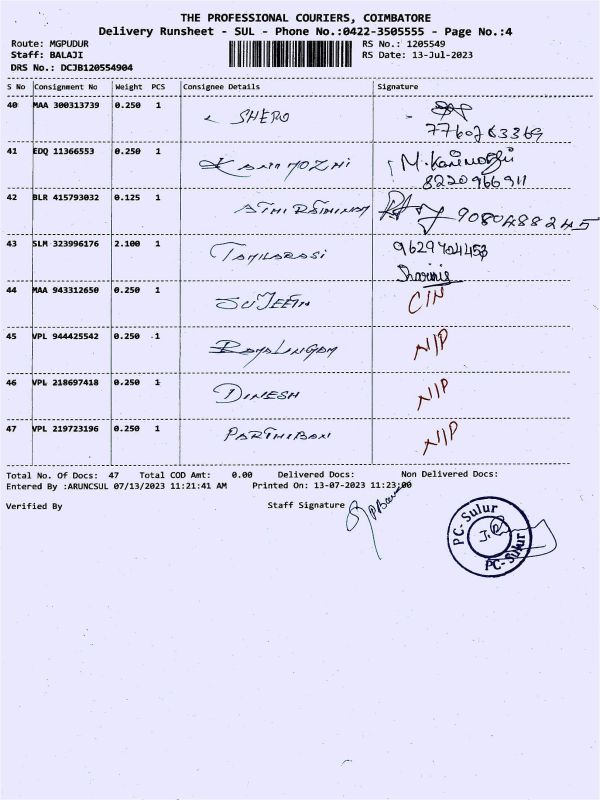 THE PROFESSIONAL COURIERS, COIMBATORE
Delivery Runsheet - SUL - Phone No.:0422-3505555 - Page No.:4
Route: MGPUDUR RS No.: 1205549
Staff: BALAJI RS Date: 13-Jul-2023
DRS No.: DCJB120554904
S No Consignment No Weight PCS Consignee Details Signature
40 MAA 300313739 0.250 1 SHERO
7760763369
41 EDQ 11366553 0.250 1 KANIMOZHI M. Kanimozhi
8220966911
42 BLR 415793032 0.125 1 9080488245
43 SLM 323996176 2.100 1 TAMILARASI 9629704453
44 MAA 943312650 0.250 1 SUJEETH CIN
45 VPL 944425542 0.250 1 RAMALINGAM N/P
46 VPL 218697418 0.250 1 DINESH N/P
47 VPL 219723196 0.250 1 PARTHIBAN N/P
Total No. Of Docs: 47 Total COD Amt: 0.00 Delivered Docs: Non Delivered Docs:
Entered By :ARUNCSUL 07/13/2023 11:21:41 AM Printed On: 13-07-2023 11:23:00
Verified By Staff Signature
PC-Sulur
PC-Sulur